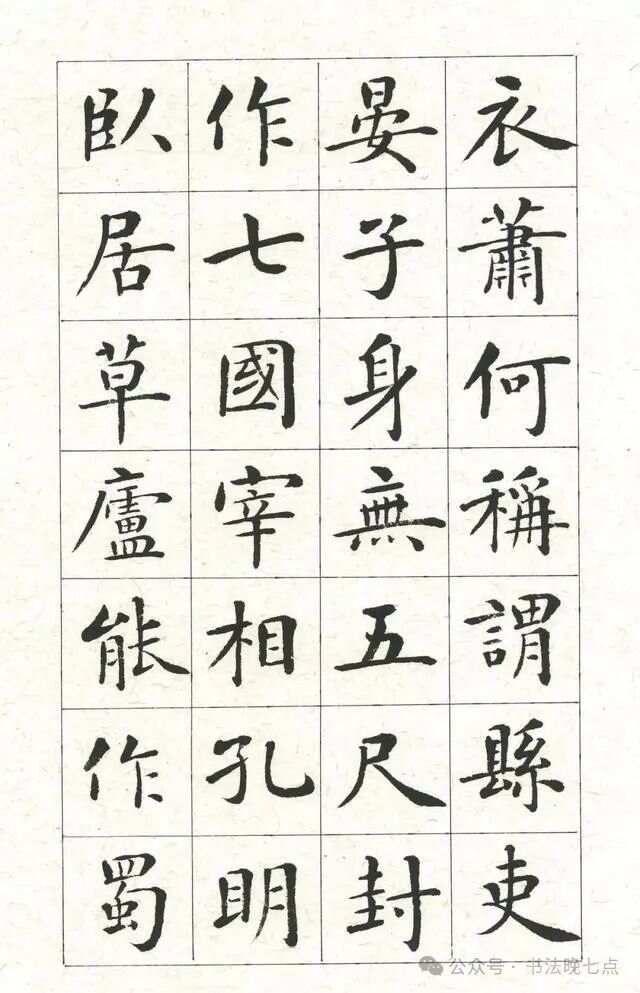 衣蕭何稱謂縣吏
晏子身無五尺封
作七國宰相孔明
臥居草廬能作蜀
公众号·书法晚七点